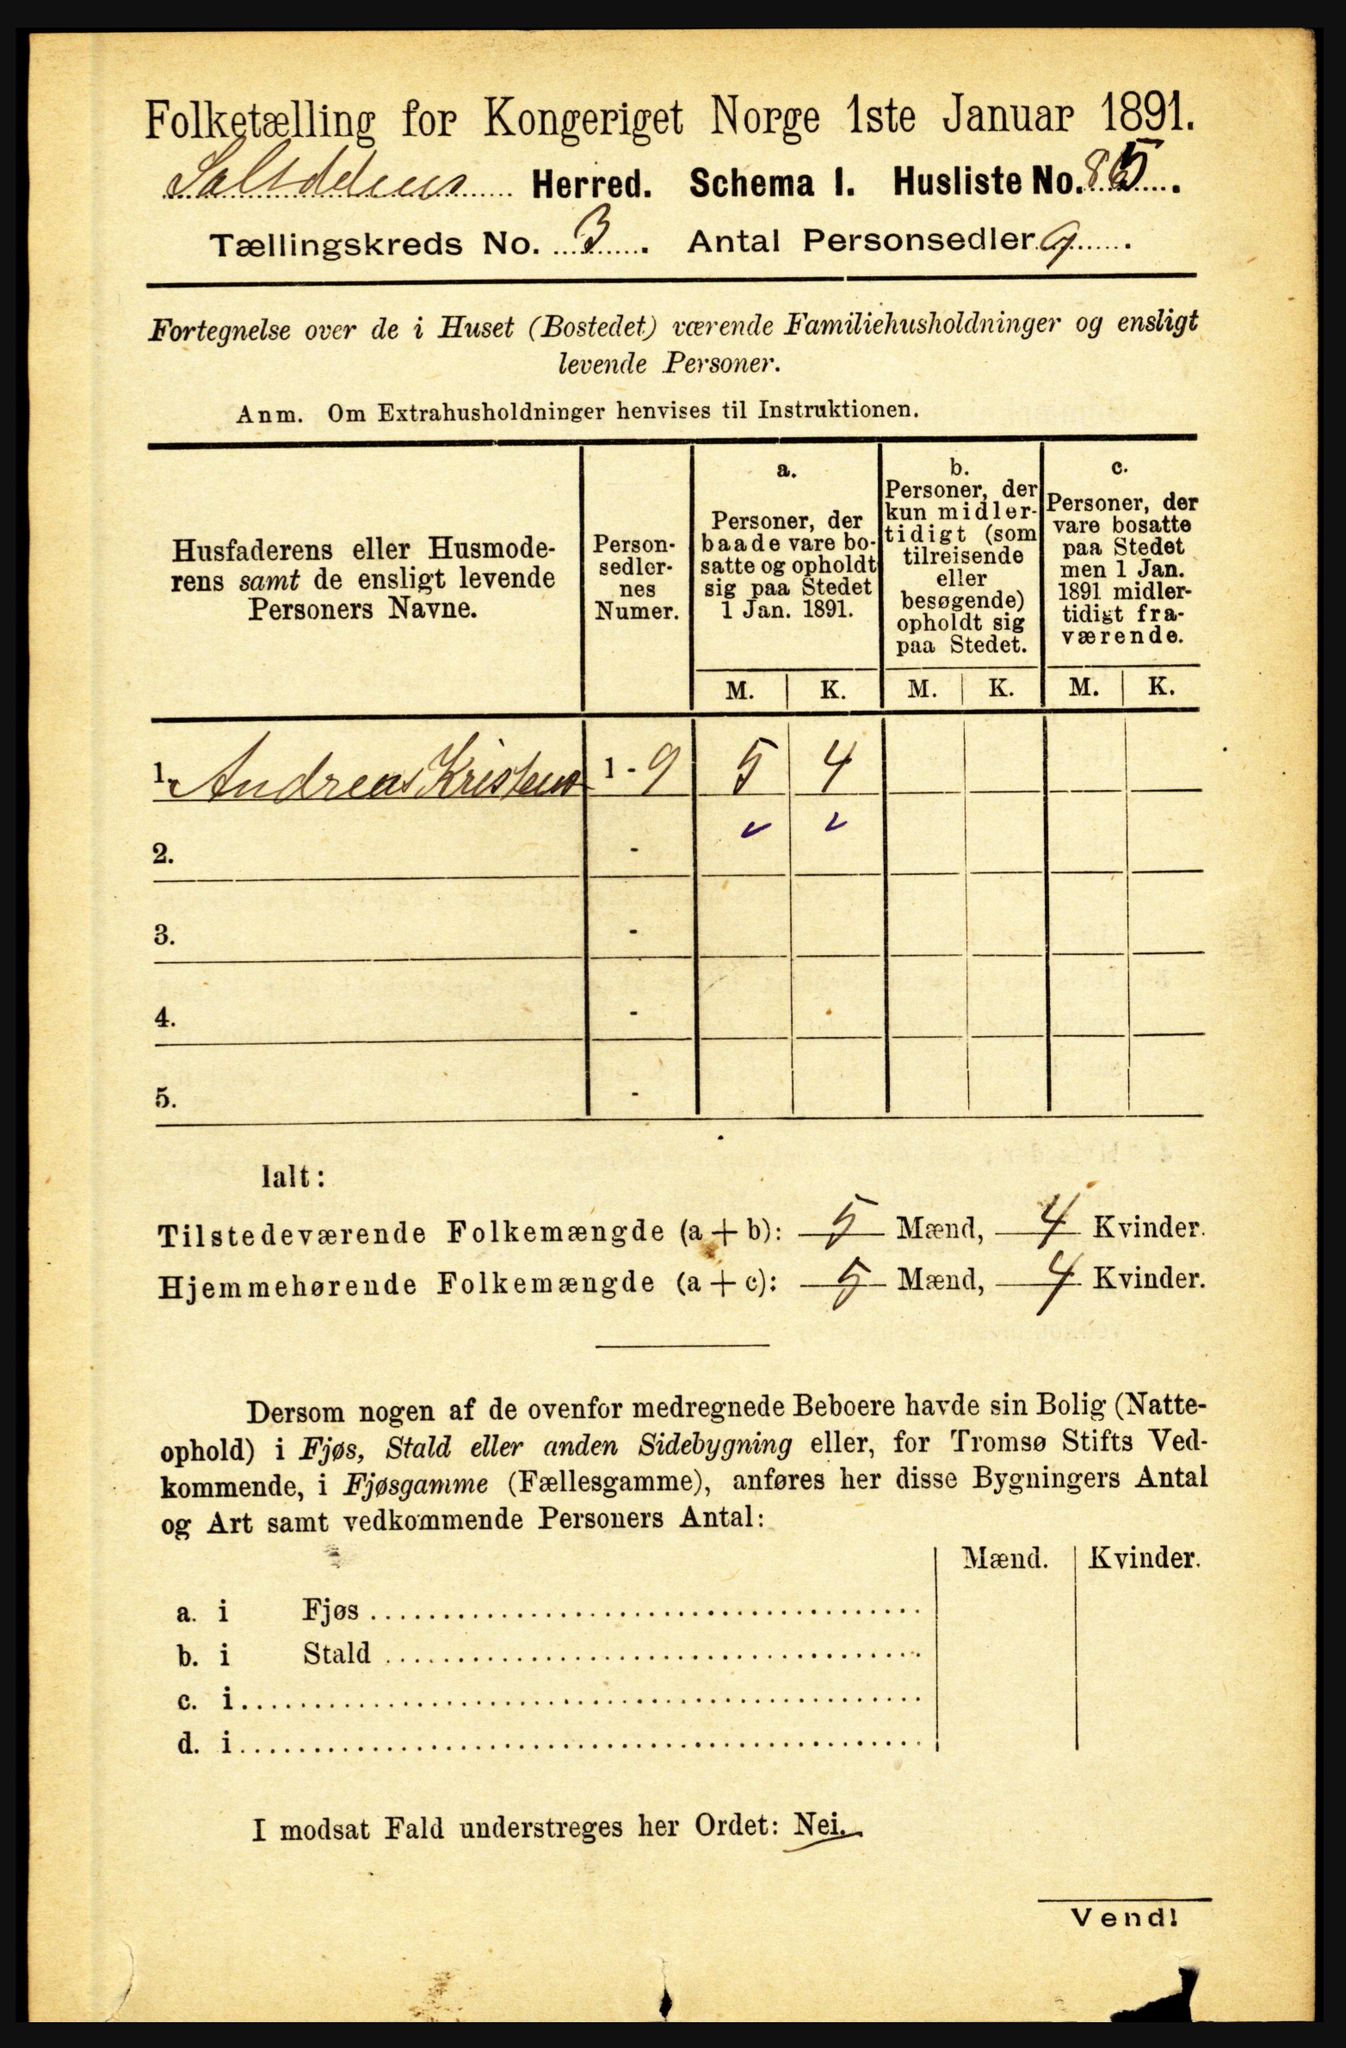 Folketælling for Kongeriget Norge 1ste Januar 1891.
Saltdalens Herred. Schema I. Husliste No. 85.
Tællingskreds No. 3. Antal Personsedler 9.
Fortegnelse over de i Huset (Bostedet) værende Familiehusholdninger og ensligt
levende Personer.
Anm. Om Extrahusholdninger henvises til Instruktionen.
Husfaderens eller Husmode-
rens samt de ensligt levende
Personers Navne.
Person-
sedler-
nes
Numer.
a.
Personer, der
baade vare bo-
satte og opholdt
sig paa Stedet
1 Jan. 1891.
b.
Personer, der
kun midler-
tidigt (som
tilreisende
eller
besøgende)
opholdt sig
paa Stedet.
c.
Personer, der
vare bosatte
paa Stedet
men 1 Jan.
1891 midler-
tidigt fra-
værende.
M. K. M. K. M. K.
1. Andreas Kristens 1 - 9 5 4
2. -
3. -
4. -
5. -
Ialt:
Tilstedeværende Folkemængde (a + b): 5 Mænd, 4 Kvinder.
Hjemmehørende Folkemængde (a + c): 5 Mænd, 4 Kvinder.
Dersom nogen af de ovenfor medregnede Beboere havde sin Bolig (Natte-
ophold) i Fjøs, Stald eller anden Sidebygning eller, for Tromsø Stifts Ved-
kommende, i Fjøsgamme (Fællesgamme), anføres her disse Bygningers Antal
og Art samt vedkommende Personers Antal:
Mænd. Kvinder.
a. i Fjøs
b. i Stald
c. i
d. i
I modsat Fald understreges her Ordet: Nei.
Vend!